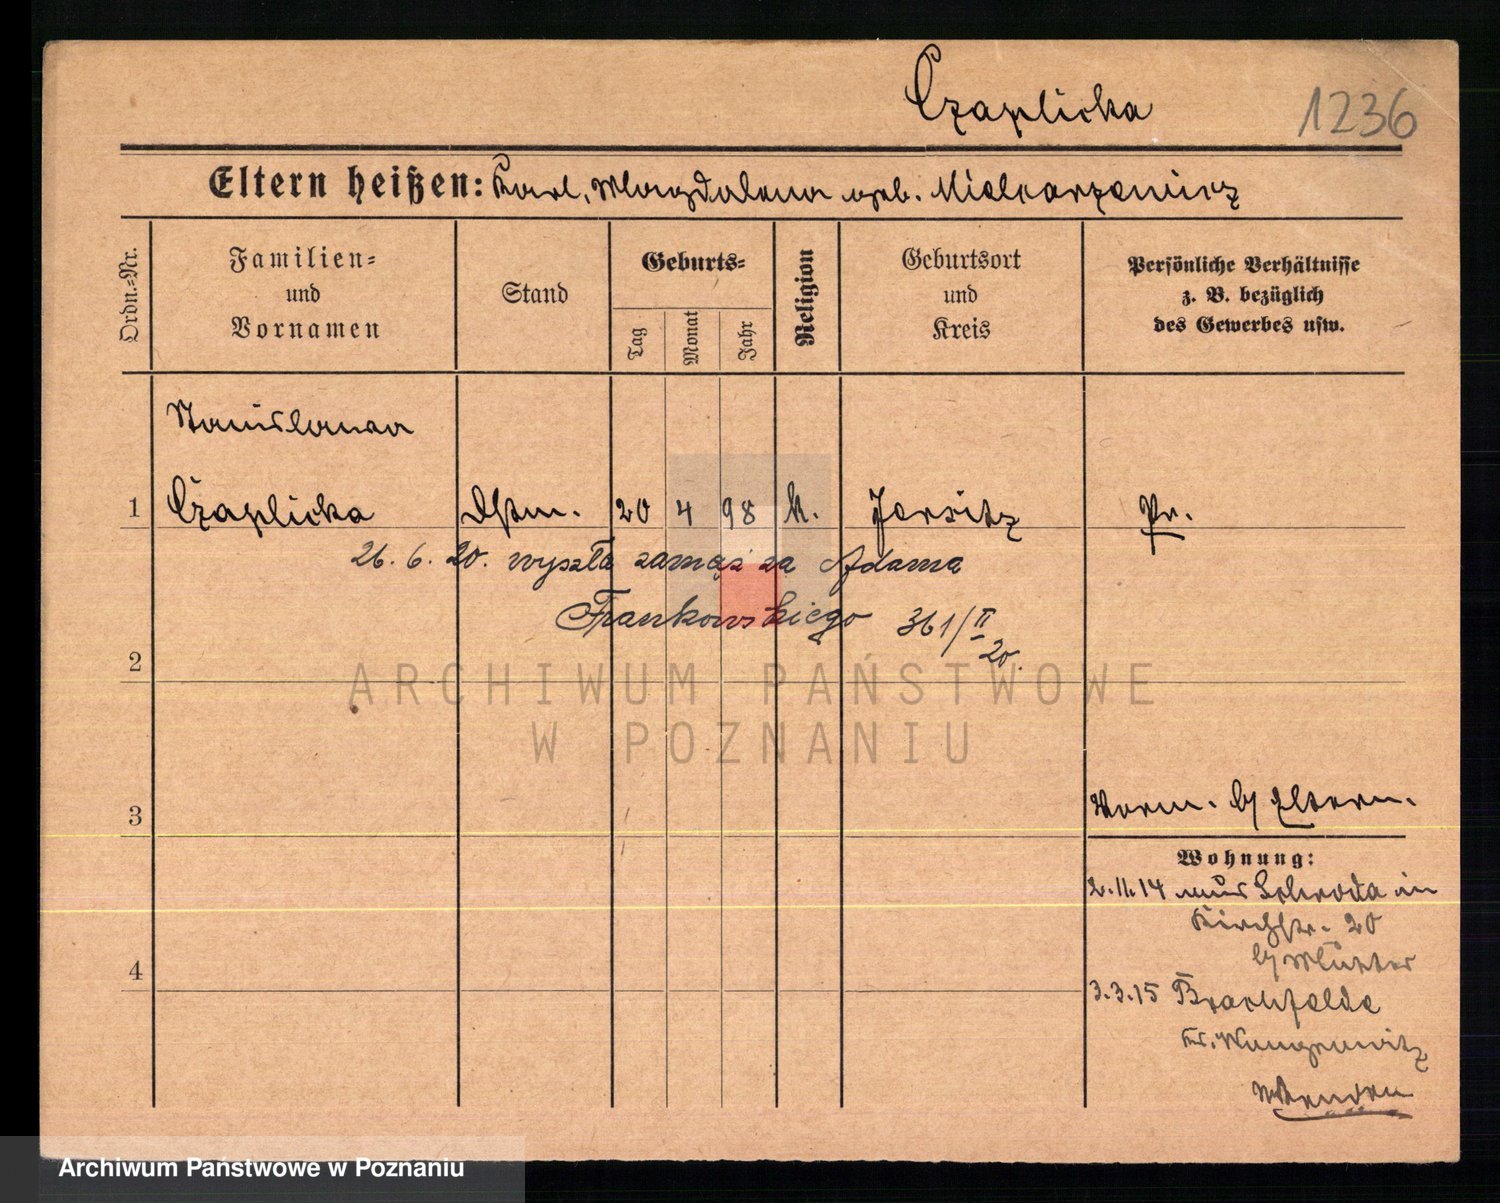 Czaplicka 1236
Eltern heißen: Karl, Magdalena geb. Mielcarzewicz
Ordn.-Nr.
Familien-
und
Vornamen
Stand
Geburts-
Tag
Monat
Jahr
Religion
Geburtsort
und
Kreis
Persönliche Verhältnisse
z. B. bezüglich
des Gewerbes usw.
Stanislawa
1 Czaplicka Dstm. 20 4 98 k. Jersitz Pr.
26. 6. 20. wyszła zamąż za Adama
Frankowskiego 361/II
20.
2
ARCHIWUM PAŃSTWOWE
W POZNANIU
3
Vorm. b/ Eltern.
Wohnung:
2.11.14 aus Schroda in
Kirchstr. 20
b/ Mutter
4
3.3.15 Brachfelde
Kr. Wongrowitz
Wenden
Archiwum Państwowe w Poznaniu